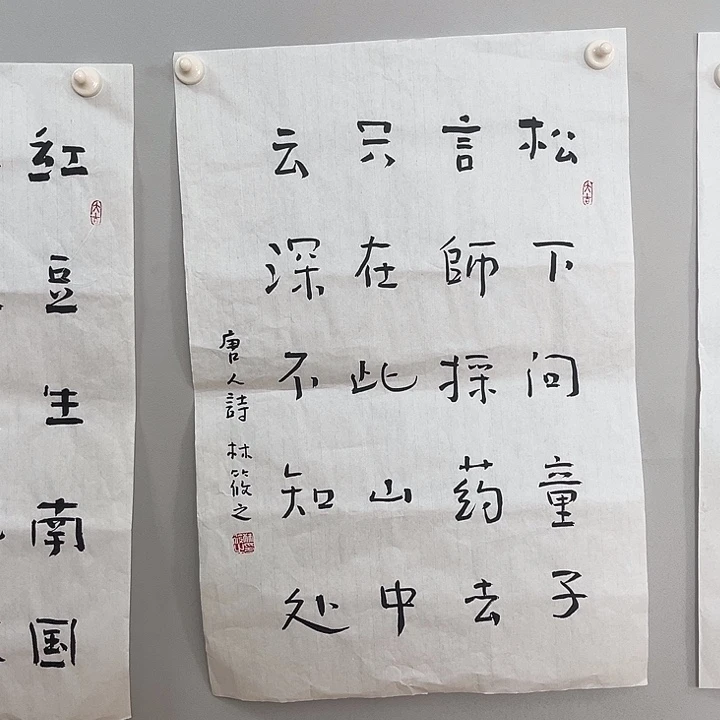 松下问童子
言師採药去
只在此山中
云深不知处
唐人詩 林筱之
大吉
紅豆生南国
大吉